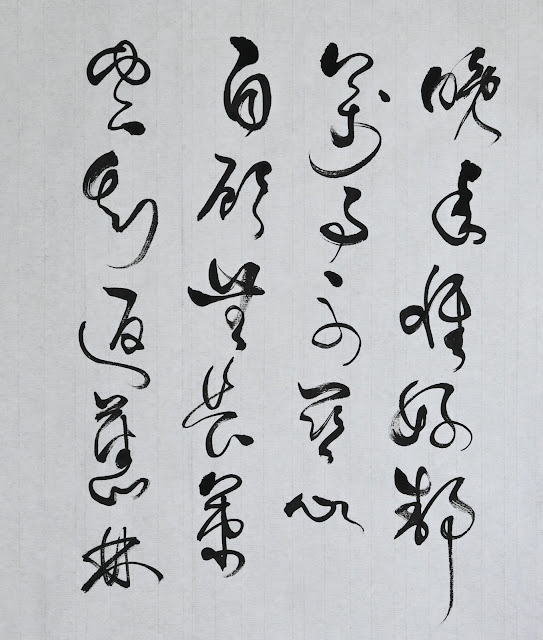 晚年惟好靜
萬事不關心
自顧無長策
空知返舊林